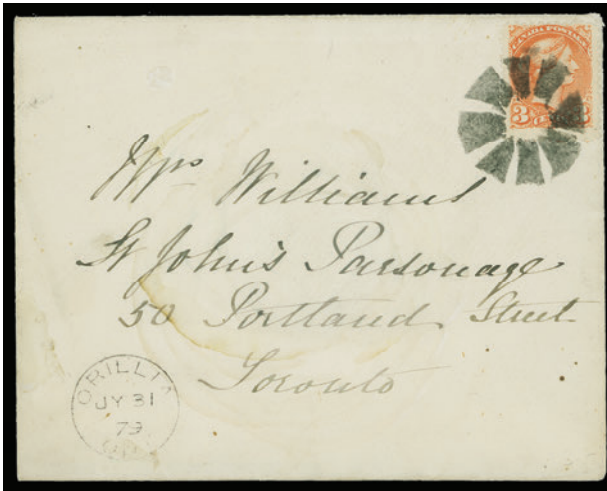 CANADA POSTAGE
3
Mrs Williams
St John's Parsonage
50 Portland Street
Toronto
ORILLIA
JY 31
79
ONT